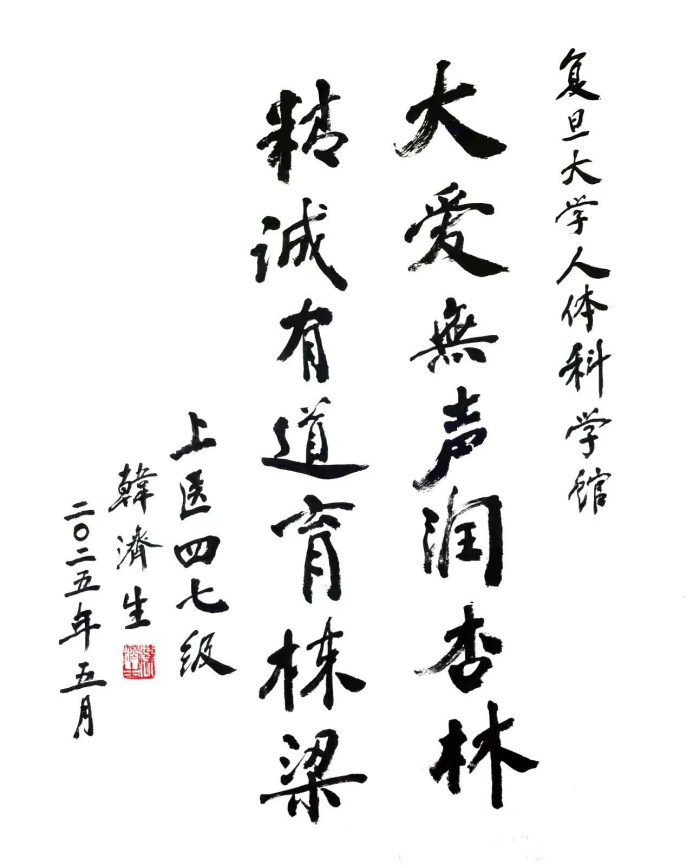 复旦大学人体科学馆
大爱無声润杏林
精诚有道育栋梁
上医四七级
韓濟生
二〇二五年五月